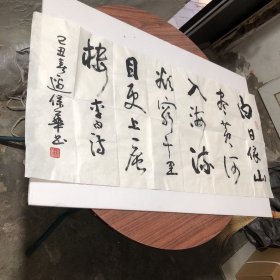 白日依山
尽黄河
入海流
欲穷千里
目更上一层
楼 李白诗
己丑春 保華书